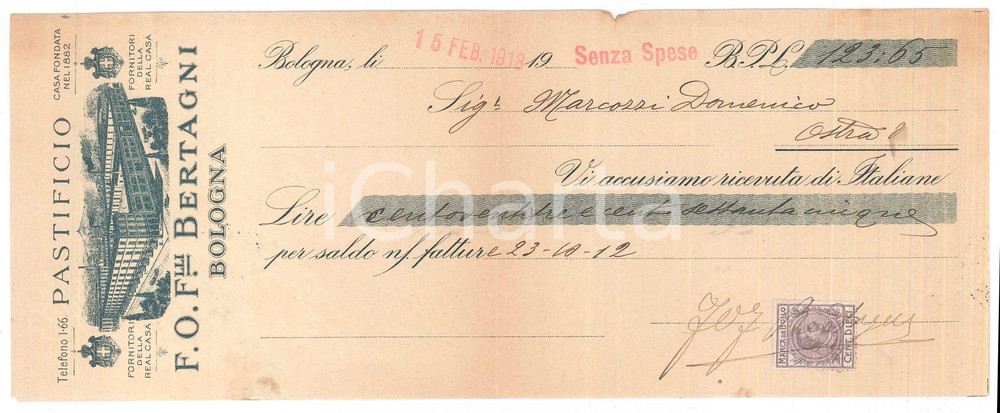 Telefono 1-66. PASTIFICIO CASA FONDATA NEL 1882
FORNITORI DELLA REAL CASA
FORNITORI DELLA REAL CASA
F. O. F.lli BERTAGNI
BOLOGNA
Bologna, li 15 FEB. 1913 19 Senza Spese B.P.L. 123:65
Sig.r Marcozzi Domenico
Ostra
Vi accusiamo ricevuta di Italiane
Lire centoventitre e cent settantacinque
per saldo n/ fatture 23-10-12
MARCA DA BOLLO
CENT. DIECI
iCharta